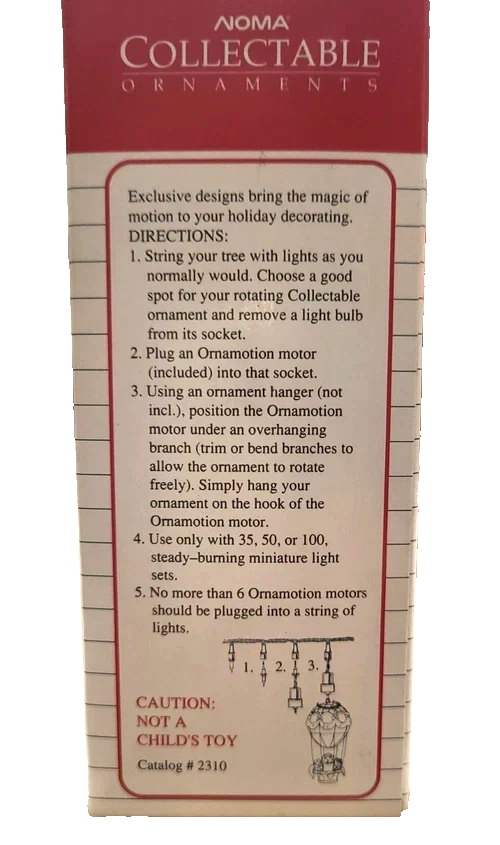 NOMA
COLLECTABLE
ORNAMENTS
Exclusive designs bring the magic of
motion to your holiday decorating.
DIRECTIONS:
1. String your tree with lights as you
normally would. Choose a good
spot for your rotating Collectable
ornament and remove a light bulb
from its socket.
2. Plug an Ornamotion motor
(included) into that socket.
3. Using an ornament hanger (not
incl.), position the Ornamotion
motor under an overhanging
branch (trim or bend branches to
allow the ornament to rotate
freely). Simply hang your
ornament on the hook of the
Ornamotion motor.
4. Use only with 35, 50, or 100,
steady–burning miniature light
sets.
5. No more than 6 Ornamotion motors
should be plugged into a string of
lights.
1. 2. 3.
CAUTION:
NOT A
CHILD'S TOY
Catalog # 2310